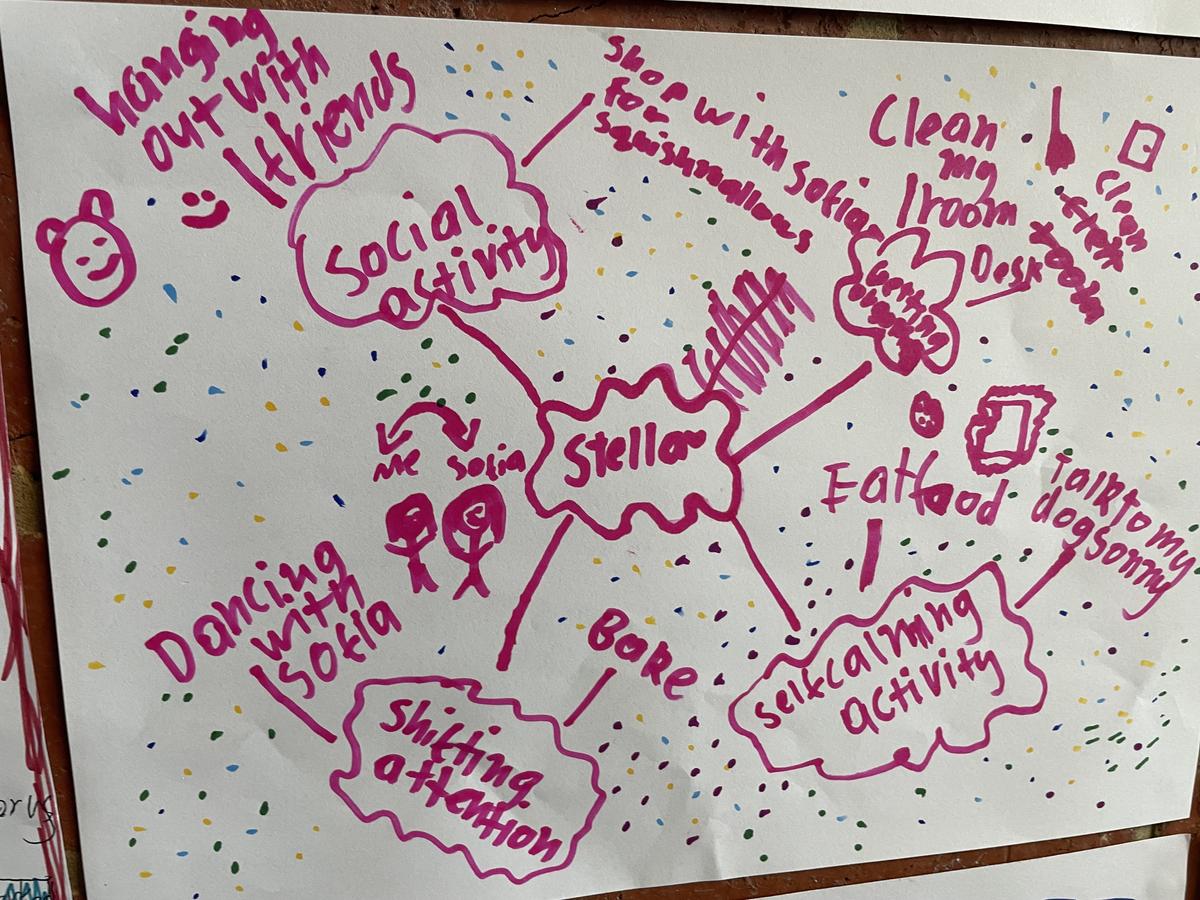 hanging
out with
friends
Social
activity
Shop with sofia
for
squishmallows
Clean
my
room
Desk
Clean
tek
room
Getting
Stella
me sofia
Eat food
Talk to my
dog Sonny
Dancing
with
Sofia
Bake
Shifting
attention
self calming
activity